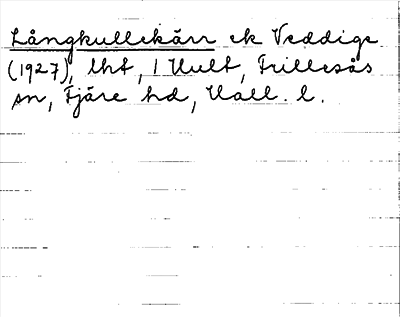 Långkullekärr ek Veddige
(1927), lht, 1 Hult, Frillesås
sn, Fjäre hd, Hall. l.